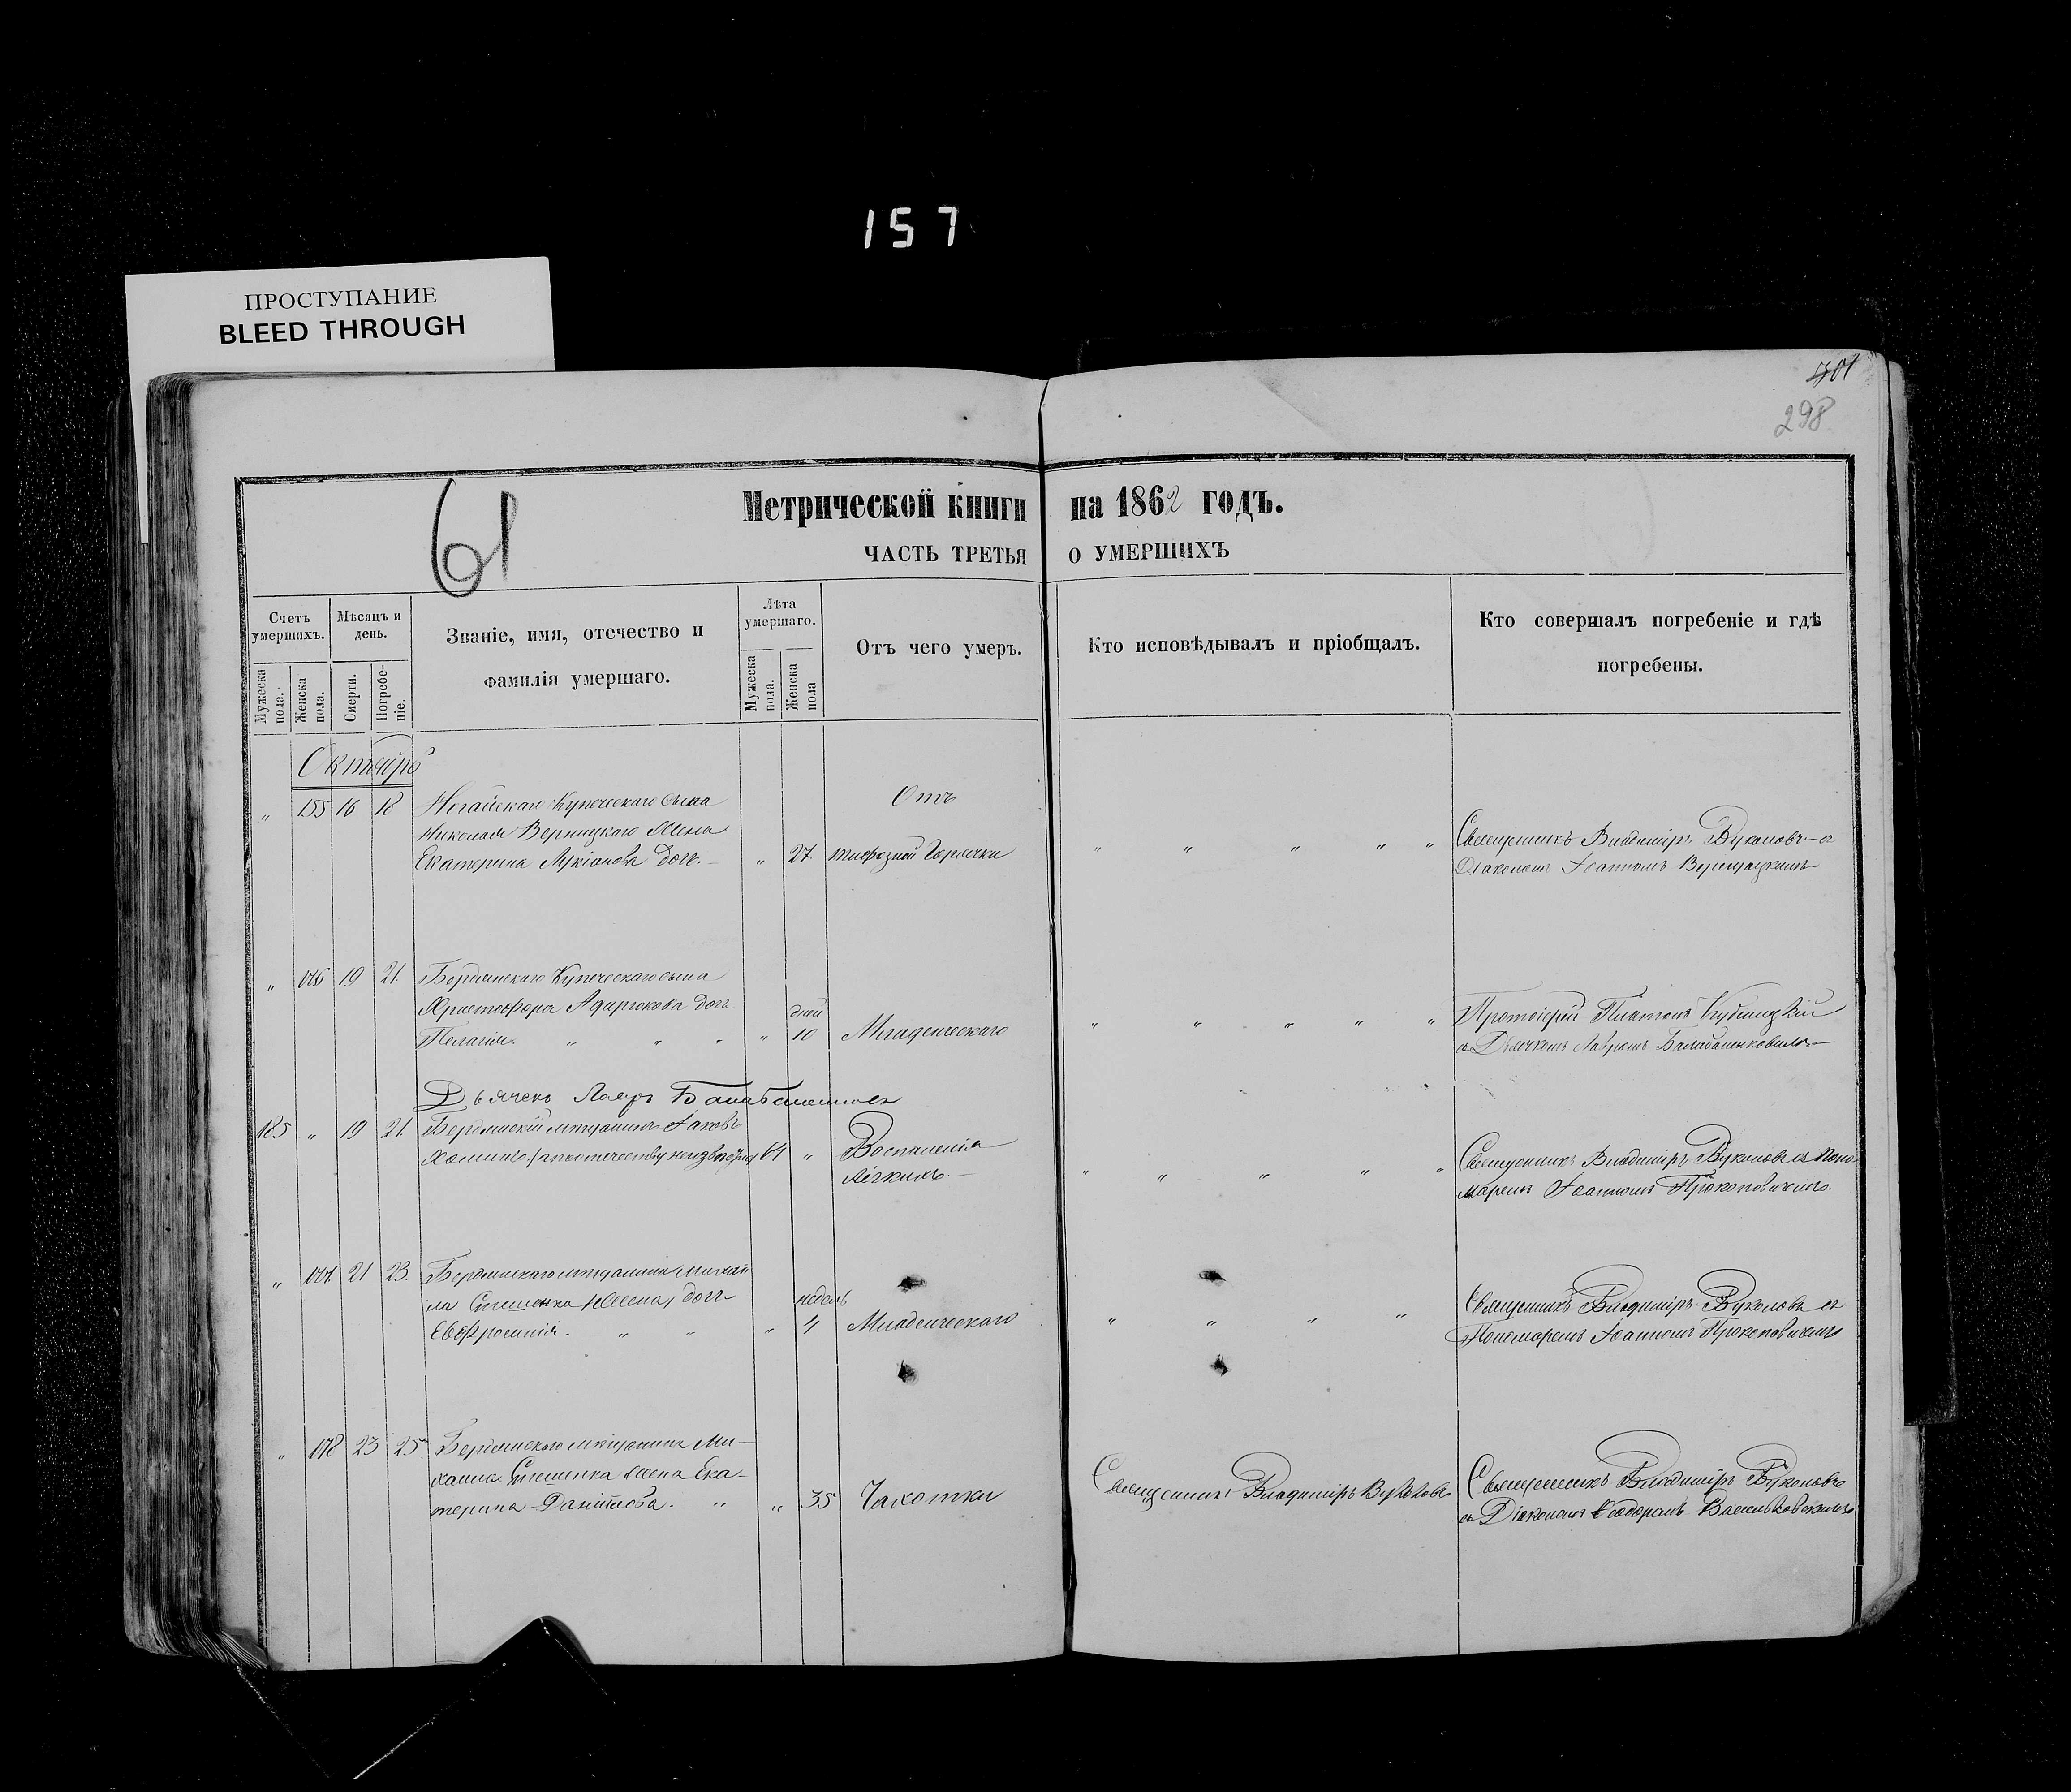 157
ПРОСТУПАНИЕ
BLEED THROUGH
298
61
Метрической книги на 1862 годъ.
ЧАСТЬ ТРЕТЬЯ О УМЕРШИХЪ
Счетъ умершихъ.
Мѣсяцъ и день.
Званіе, имя, отечество и фамилія умершаго.
Лѣта умершаго.
Отъ чего умеръ.
Кто исповѣдывалъ и пріобщалъ.
Кто совершалъ погребеніе и гдѣ погребены.
Мужеска пола.
Женска пола.
Смерти.
Погребеніе.
Мужеска пола.
Женска пола
Октября
Отъ
" 155 16 18 Ногайскаго Купеческаго сына
Николая Верницкаго жена
Екатерина Лукіанова дочь. " 27 тифозной Горячки " " " " "
Священникъ Владиміръ Вуколовъ с
Діакономъ Іоанномъ
" 19 21 Бердянскаго Купеческаго сына
Христофора дочь
Пелагія " " " " дней 10 Младенческаго " " " " "
Протоіерей Платонъ
съ Дьячкомъ Лавромъ Балабаненковымъ
Дьячекъ Лавръ Балабаненковъ
185 " 19 21 Бердянскій мѣщанинъ Іаковъ
Хоминъ (по отечеству неизвѣстенъ) 64 " Воспаленія
лёгкихъ " " " " "
Священникъ Владиміръ Вуколовъ съ Поно-
маремъ Іоанномъ Прокоповичемъ.
" 21 23 Бердянскаго мѣщанина Михаи
ла дочь
Евфросинія " " " недель 4 Младенческаго " " " "
Священникъ Владиміръ Вуколовъ съ
Пономаремъ Іоанномъ Прокоповичемъ
" 23 25 Бердянскаго мѣщанина Ми-
хаила жена Ека-
терина Данилова " " 35 Чахотки
Священникъ Владиміръ Вуколовъ
Священникъ Владиміръ Вуколовъ
съ Діакономъ Ѳеодоромъ Васильковскимъ